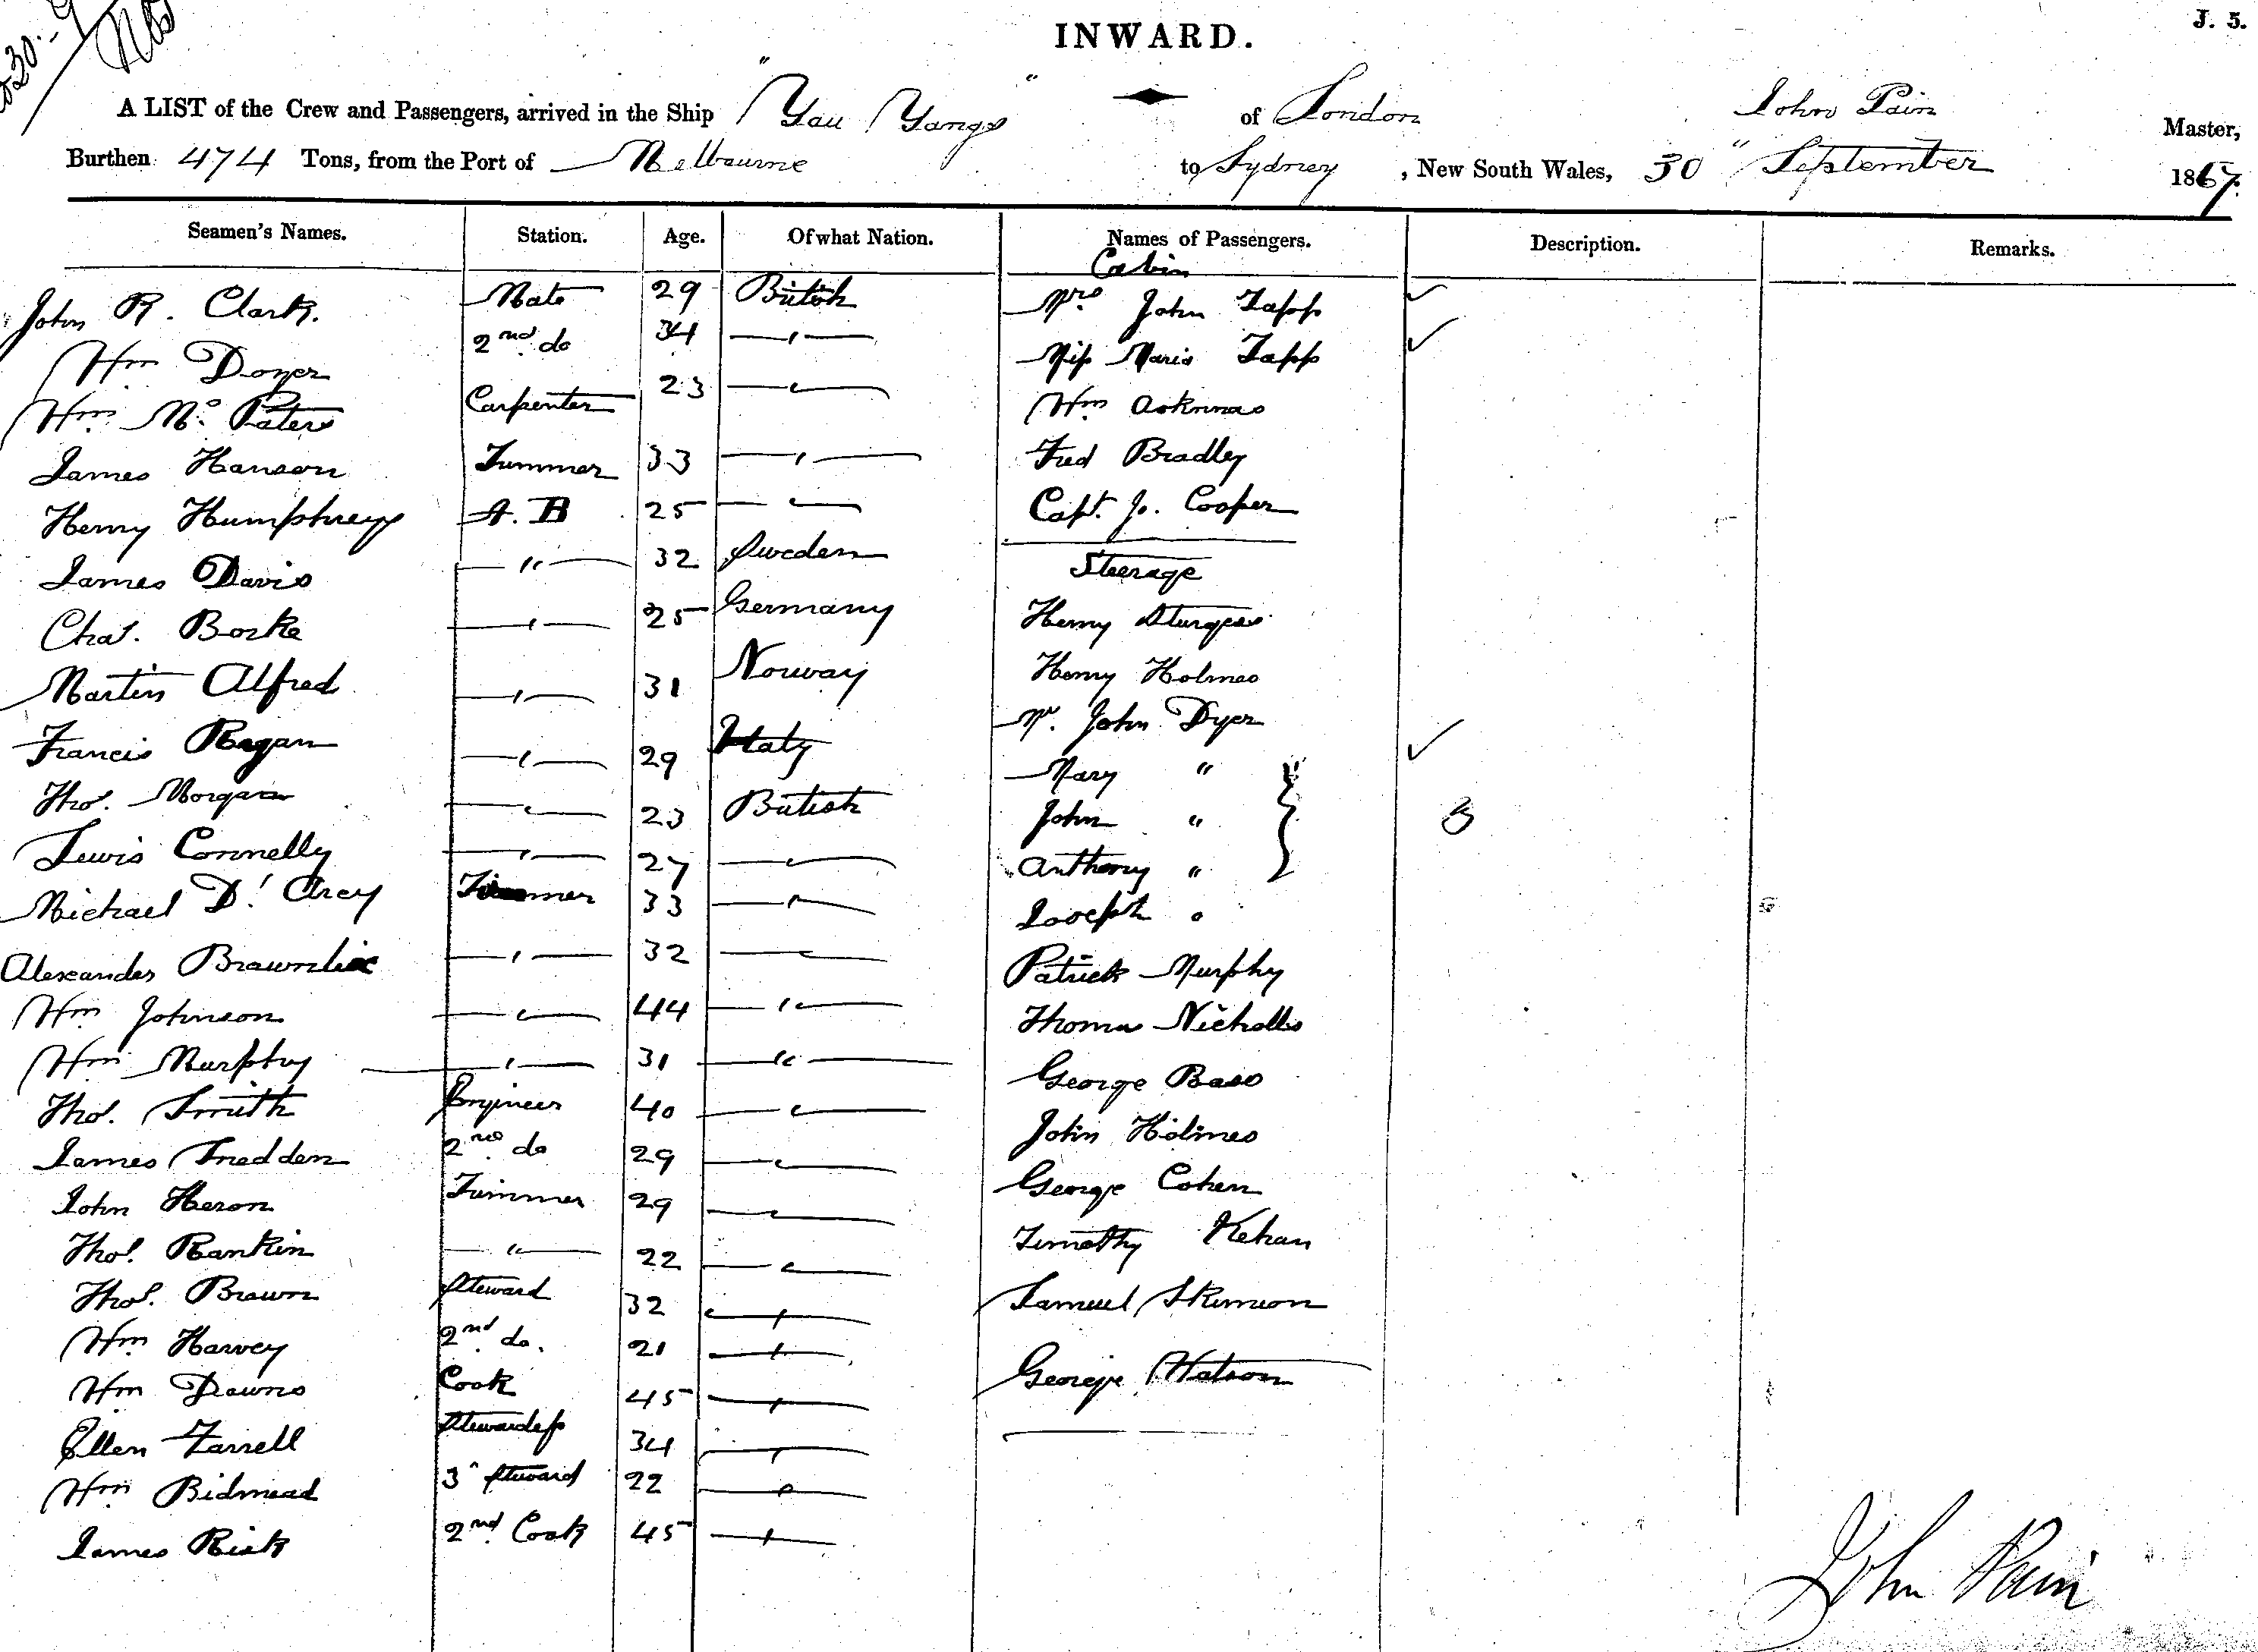 INWARD.
J. 5.
A LIST of the Crew and Passengers, arrived in the Ship "You Yangs" of London John Pain Master,
Burthen 474 Tons, from the Port of Melbourne to Sydney, New South Wales, 30" September 1867.
Seamen's Names. Station. Age. Of what Nation. Names of Passengers. Description. Remarks.
Cabin
John R. Clark. Mate 29 British Mrs John Tapp ✓
Wm Doyer 2nd do 34 " Miss Maria Tapp ✓
Wm Mc Paters Carpenter 23 " Wm
James Hanson Trimmer 33 " Fred Bradley
Henry Humphreys A.B 25 " Capt. J. Cooper
James Davis " 32 Sweden Steerage
Chas. Borke " 25 Germany Henry Sturgess
Martin Alfred " 31 Norway Henry Holmes
Francis Ragan " 29 Italy Mr. John Dyer
Thos. Morgan " 23 British Mary " ✓
Lewis Connelly " 27 " John " 3
Michael D'Arcy Trimmer 33 " Anthony "
Joseph "
Alexander Brownlie " 32 " Patrick Murphy
Wm Johnson " 44 " Thomas Nicholls
Wm Murphy " 31 " George Bass
Thos. Smith Engineer 40 " John Holmes
James Snedden 2nd do 29 " George Cohen
John Heron Trimmer 29 " Timothy Kehan
Thos. Rankin " 22 "
Thos. Brown Steward 32 " Samuel Skinnon
Wm Harvey 2nd do. 21 " George Watson
Wm Downs Cook 45 "
Ellen Farrell Stewardess 34 "
Wm Bidmead 3" Steward 22 "
James Risk 2nd Cook 45 "
John Pain